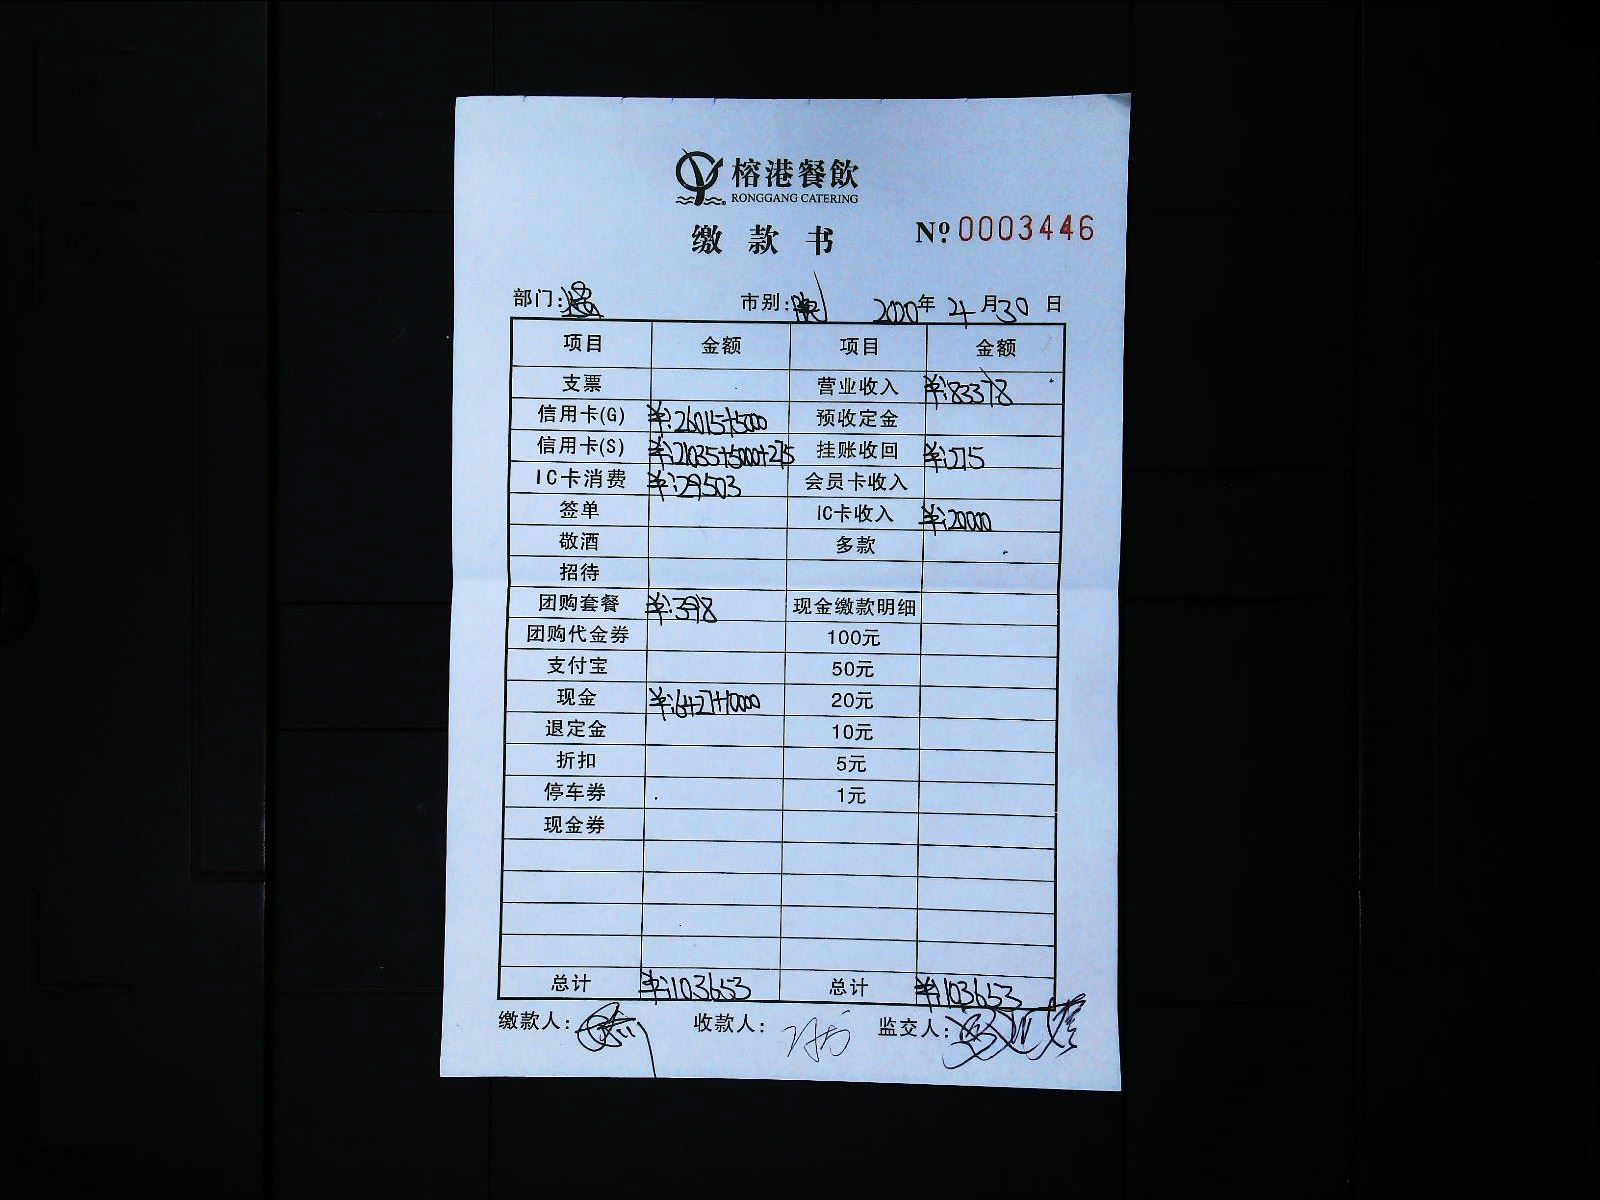 榕港餐飲
RONGGANG CATERING
缴款书 Nº 0003446
部门: 市别: 2020年 4月30日
项目 金额 项目 金额
支票 营业收入 ¥:83378
信用卡(G) ¥:26015+5000 预收定金
信用卡(S) ¥:21035+5000+275 挂账收回 ¥:275
IC卡消费 ¥:29503 会员卡收入
签单 IC卡收入 ¥:20000
敬酒 多款
招待
团购套餐 ¥:398 现金缴款明细
团购代金券 100元
支付宝 50元
现金 ¥:6427+10000 20元
退定金 10元
折扣 5元
停车券 1元
现金券
总计 ¥:103653 总计 ¥:103653
缴款人: 收款人: 监交人: